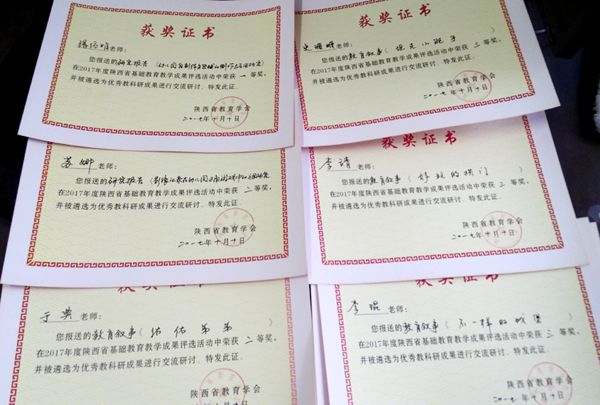 获奖证书
老师：
您报送的研究报告（
在2017年度陕西省基础教育教学成果评选活动中荣获一等奖，
并被遴选为优秀教科研成果进行交流研讨．特发此证．
陕西省教育学会
二〇一七年十月十日
获奖证书
老师：
您报送的教育叙事（
在2017年度陕西省基础教育教学成果评选活动中荣获三等奖，
并被遴选为优秀教科研成果进行交流研讨．特发此证．
陕西省教育学会
二〇一七年十月十日
苏娜老师：
您报送的研究报告（
在2017年度陕西省基础教育教学成果评选活动中荣获二等奖，
并被遴选为优秀教科研成果进行交流研讨．特发此证．
陕西省教育学会
二〇一七年十月十日
获奖证书
李靖老师：
您报送的教育叙事（好玩的拱门）
在2017年度陕西省基础教育教学成果评选活动中荣获二等奖，
并被遴选为优秀教科研成果进行交流研讨．特发此证．
陕西省教育学会
二〇一七年十月十日
获奖证书
于英老师：
您报送的教育叙事（佑佑弟弟）
在2017年度陕西省基础教育教学成果评选活动中荣获二等奖，
并被遴选为优秀教科研成果进行交流研讨．特发此证．
陕西省教育学会
获奖证书
李琨老师：
您报送的教育叙事（不一样的城堡）
在2017年度陕西省基础教育教学成果评选活动中荣获三等奖，
并被遴选为优秀教科研成果进行交流研讨．特发此证．
陕西省教育学会
二〇一七年十月十日